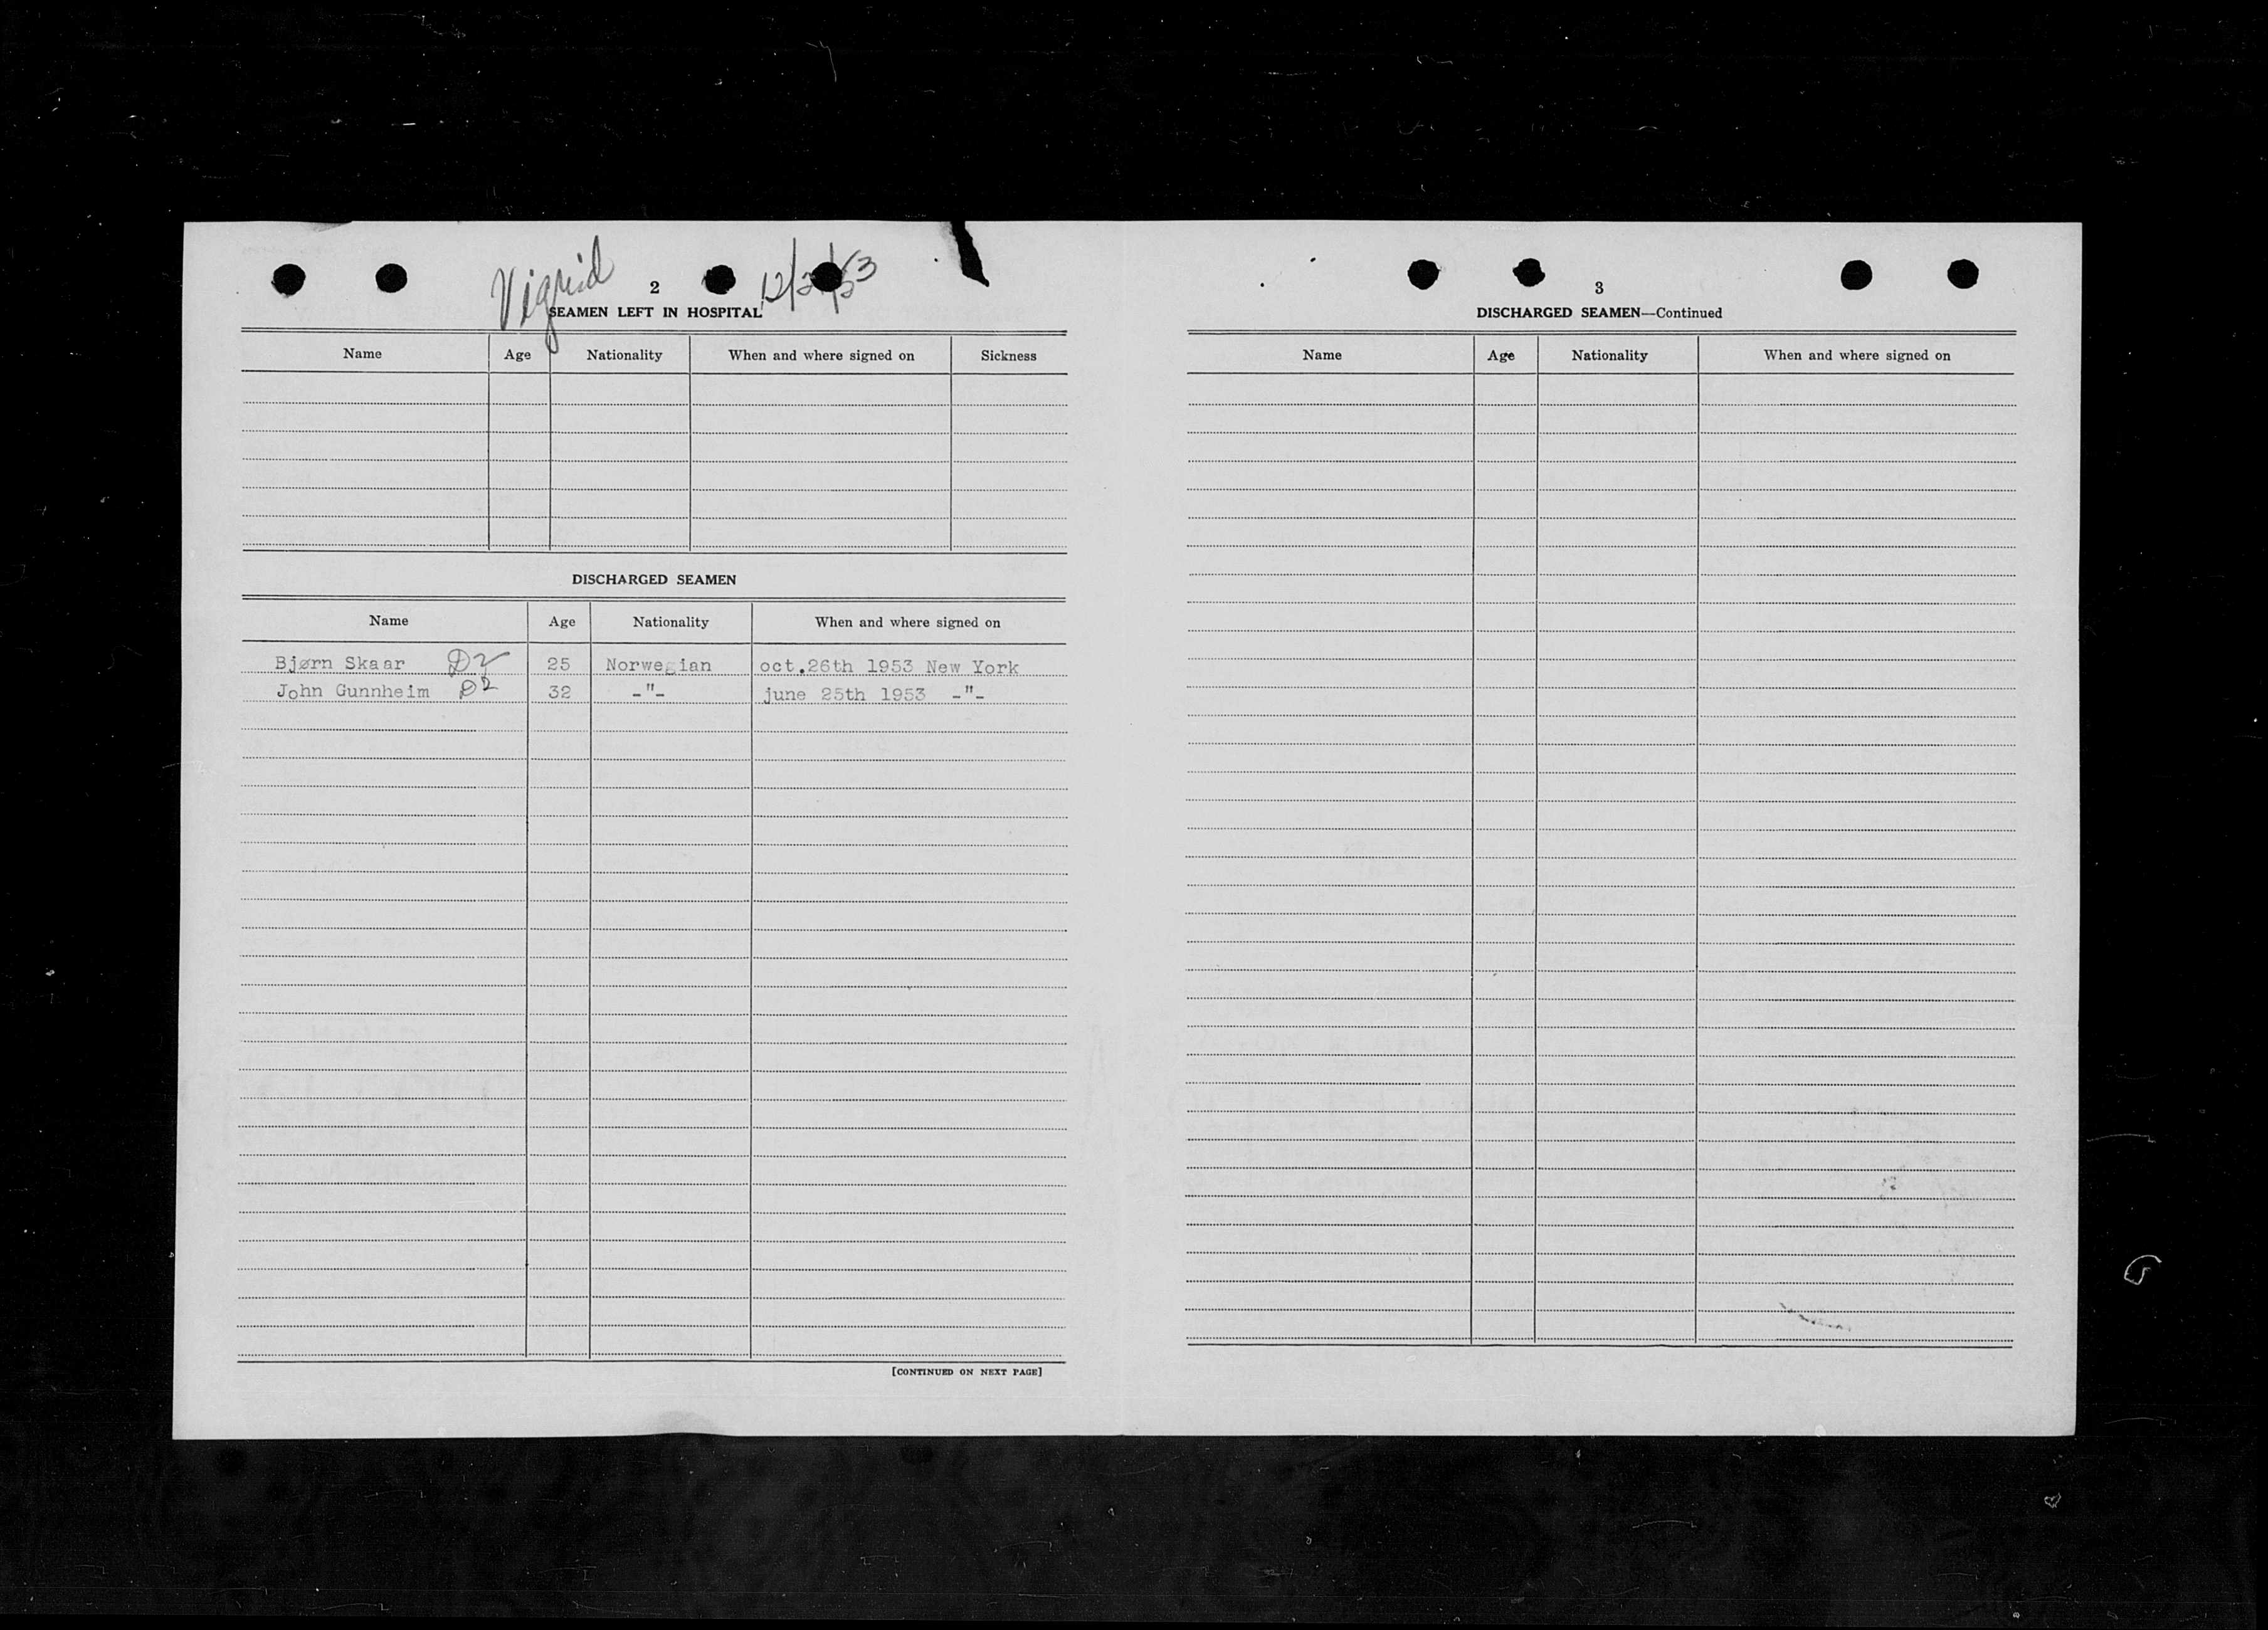 Vigrid
2
SEAMEN LEFT IN HOSPITAL
Name Age Nationality When and where signed on Sickness
DISCHARGED SEAMEN
Name Age Nationality When and where signed on
Bjørn Skaar D2 25 Norwegian oct.26th 1953 New York
John Gunnheim D2 32 -"- june 25th 1953 -"-
[CONTINUED ON NEXT PAGE]
3
DISCHARGED SEAMEN—Continued
Name Age Nationality When and where signed on